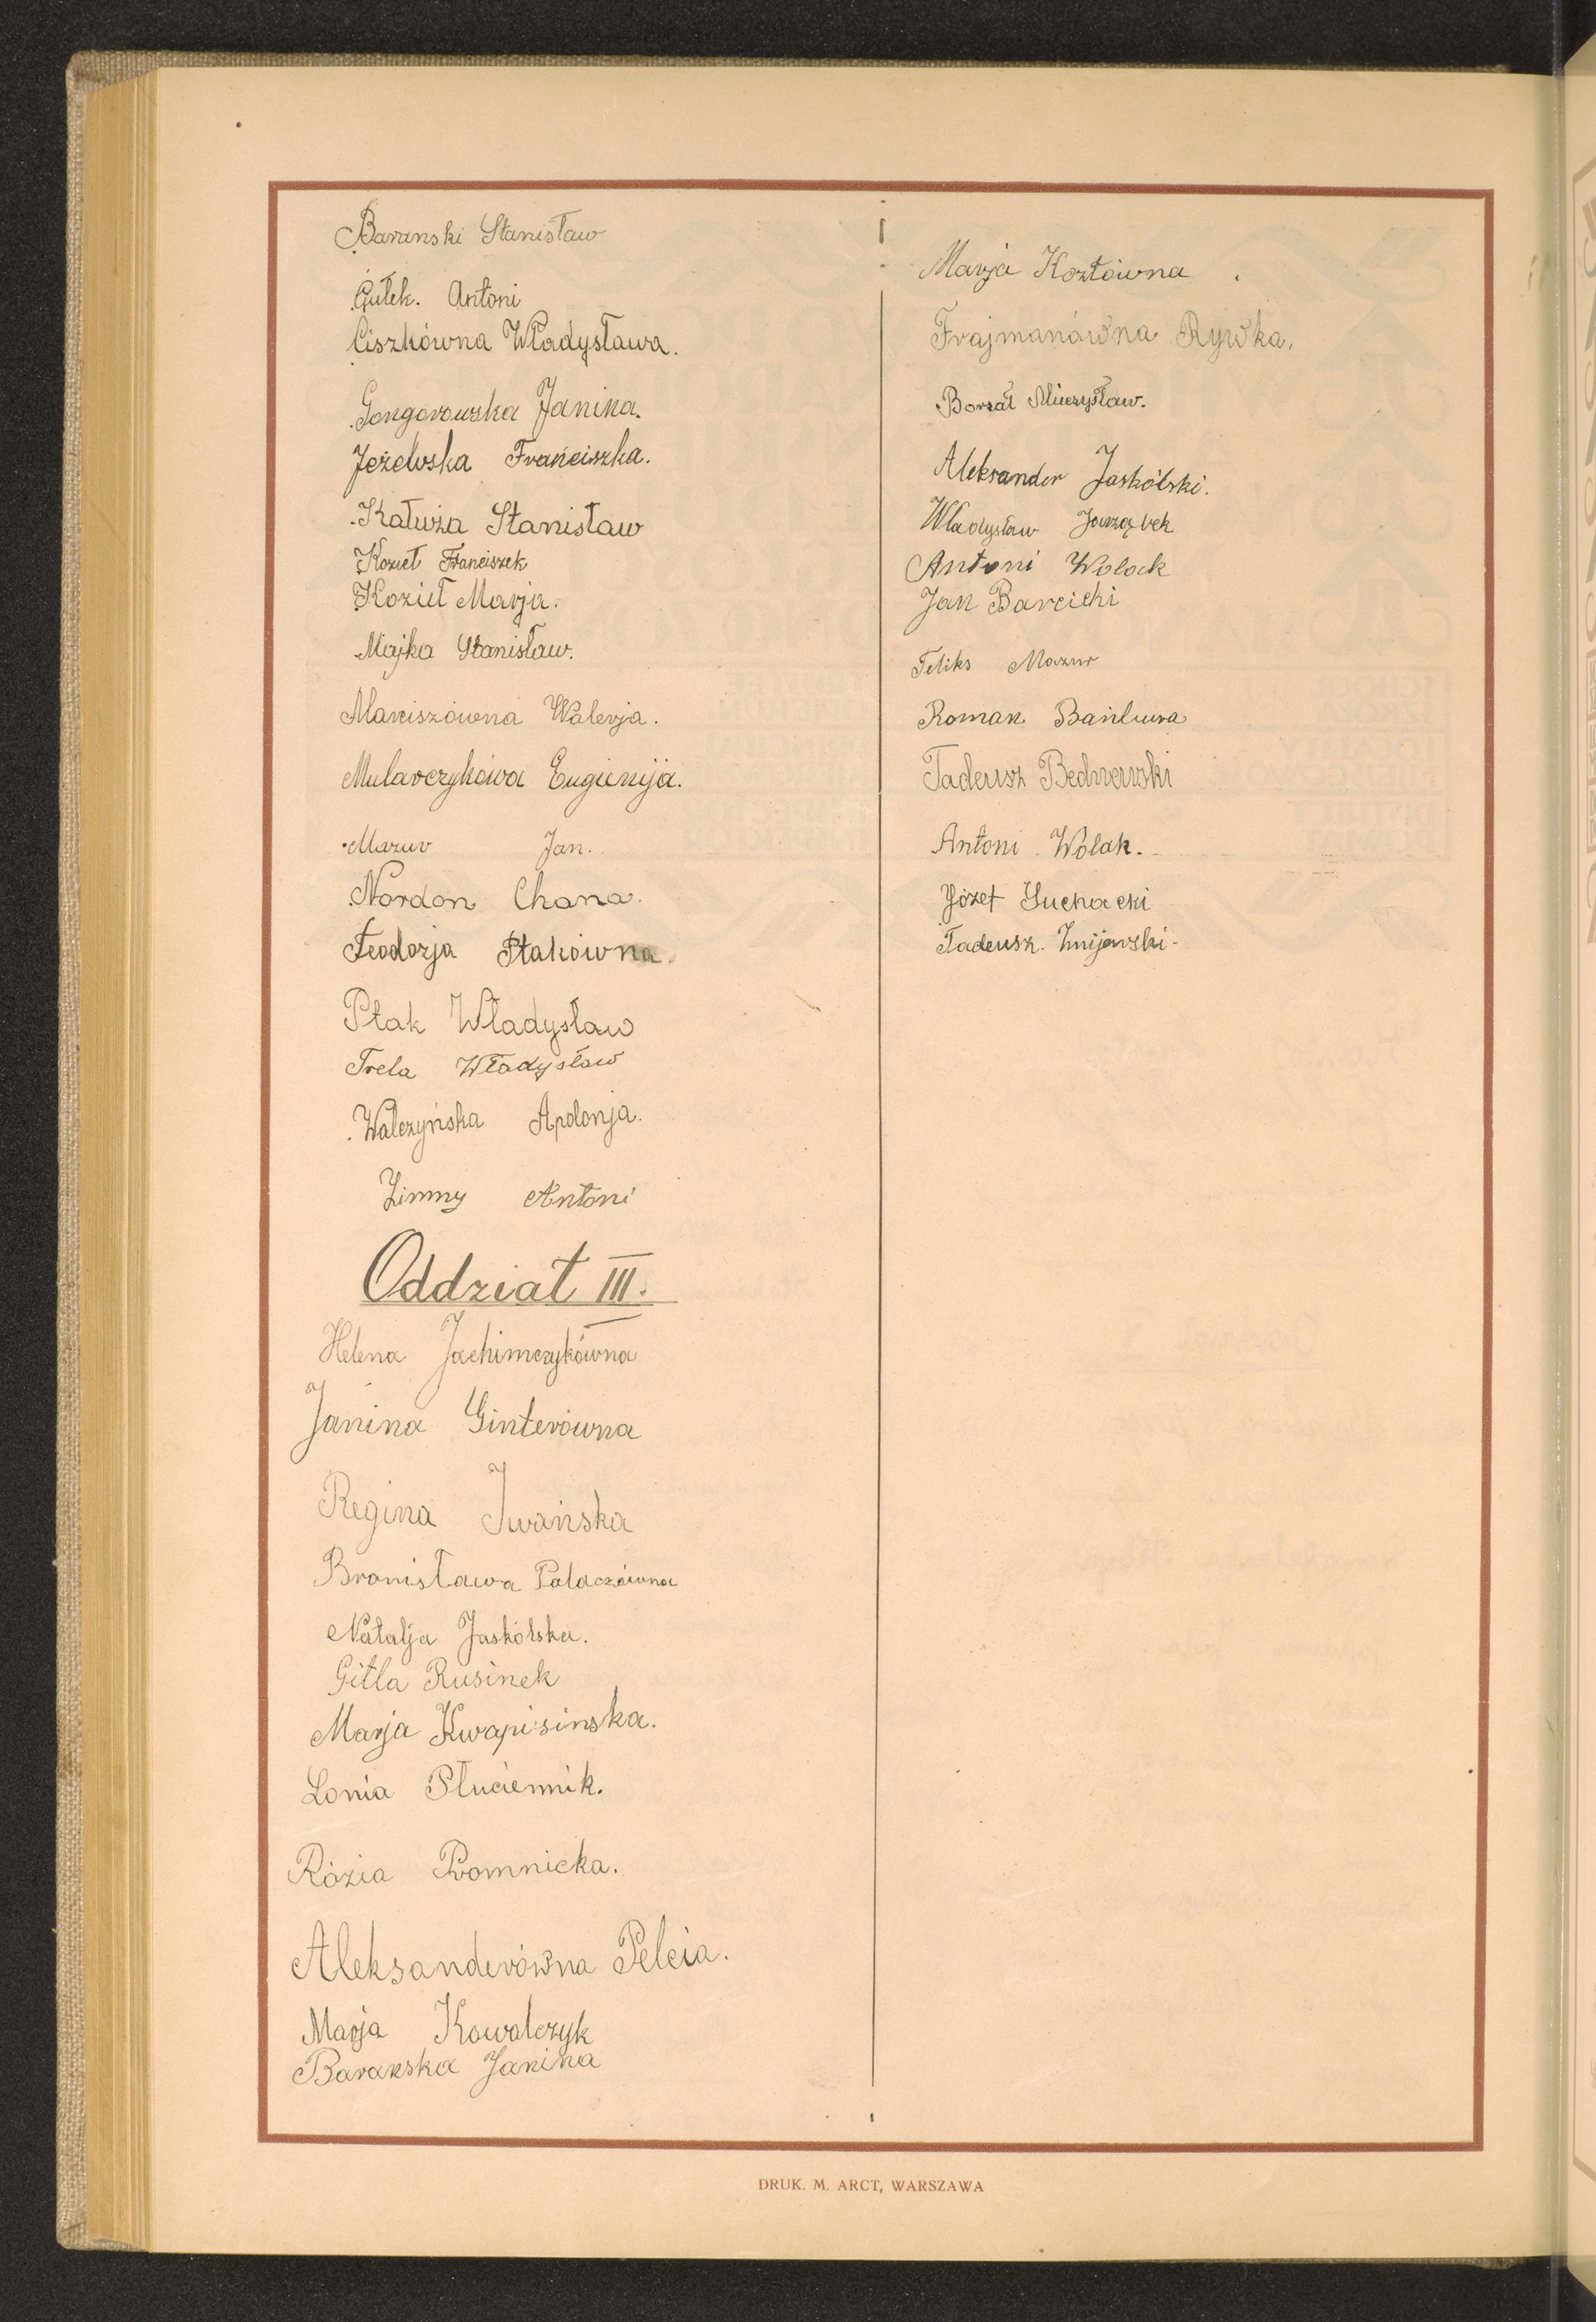 Baranski Stanisław
Gułek. Antoni
Ciszkówna Władysława.
Gongorowska Janina.
Jeżelwska Franciszka.
Kałuża Stanisław
Kozieł Franciszek
Kozieł Marja.
Majka Stanisław.
Marciszówna Walerja.
Mularczykówa Eugienija.
Mazur Jan.
Nordon Chana.
Teodozja Ptakówna.
Ptak Władysław
Trela Władysław
Walczyńska Apolonja.
Zimny Antoni
Oddział III.
Helena Jachimczykówna
Janina Ginterówna
Regina Iwańska
Bronisława Palaczówna
Natalja Jaskólska.
Gitla Rusinek
Marja Kwapisinska.
Lonia Płuciennik.
Rózia Promnicka.
Aleksanderówna Pelcia.
Marja Kowalczyk
Baranska Janina
Marja Kozłówna
Frajmanówna Rywka.
Borzał Mieczysław.
Aleksander Jaskólski.
Władysław Jarząbek
Antoni Wolack
Jan Barcicki
Feliks Mazur
Roman
Tadeusz Bednarski
Antoni Wolak.
Józef Suchacki
Tadeusz. Żmijewski
DRUK. M. ARCT, WARSZAWA